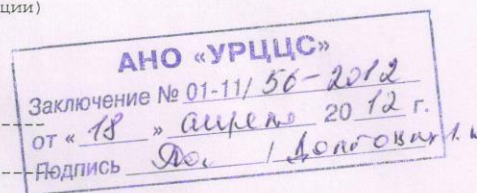 ции)
АНО «УРЦЦС»
Заключение № 01-11/ 56-2012
от « 18 » апреля 20 12 г.
Подпись /